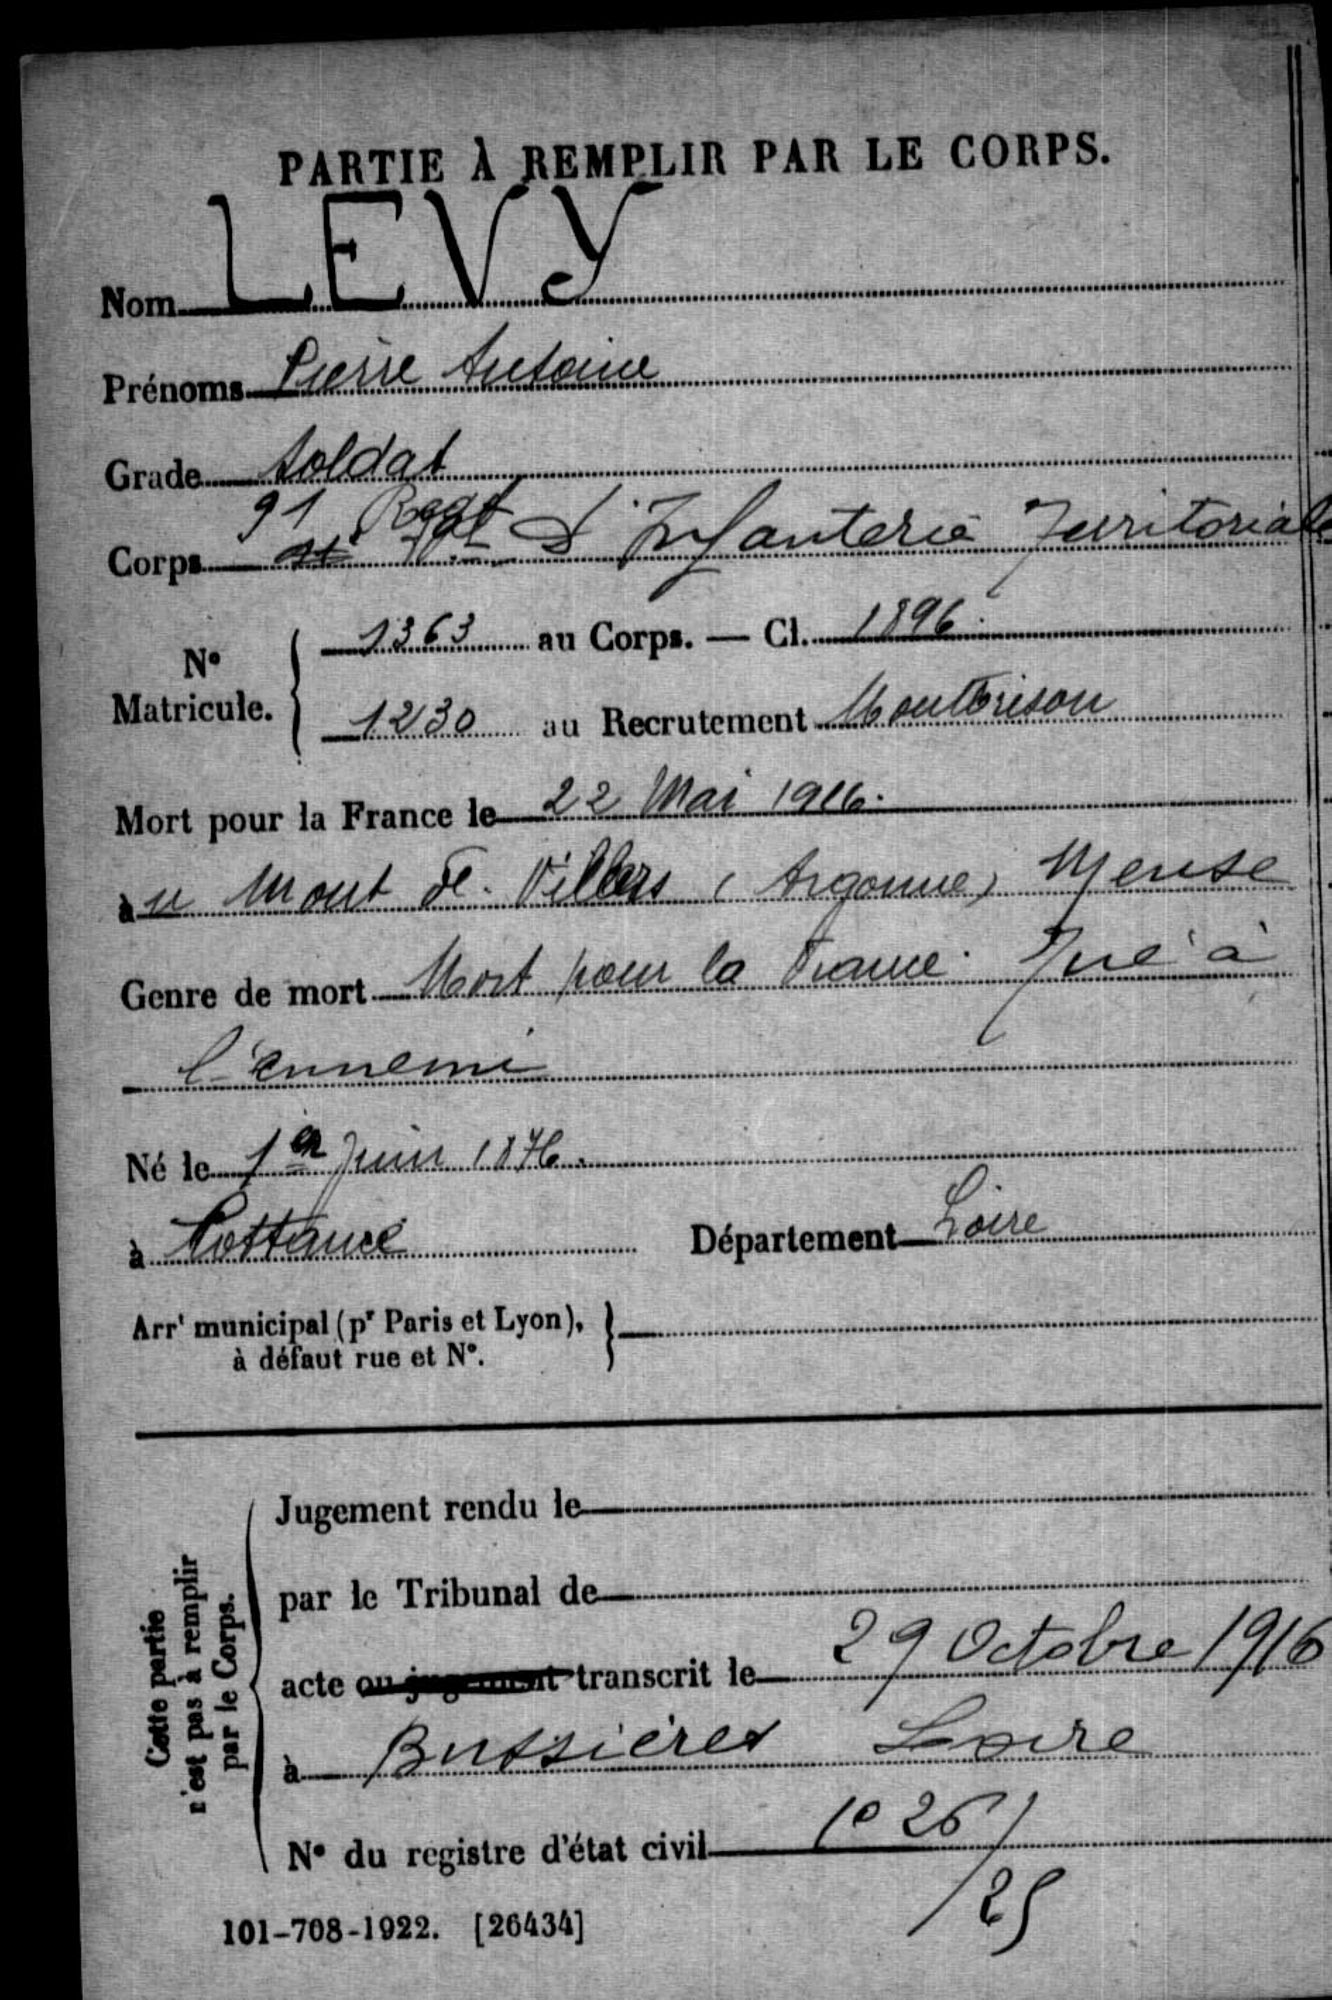 PARTIE À REMPLIR PAR LE CORPS.
Nom LEVY
Prénoms Pierre Antoine
Grade Soldat
Corps 91 Regt d'Infanterie Territoriale
N° Matricule. { 1363 au Corps. — Cl. 1896.
1230 au Recrutement Montbrison
Mort pour la France le 22 Mai 1916.
au Mont de Villers (Argonne) Meuse
Genre de mort Mort pour la France. Tué à
l'ennemi
Né le 1er Juin 1876.
à Cottance Département Loire
Arrt municipal (pr Paris et Lyon), }
à défaut rue et N°.
Cette partie
n'est pas à remplir
par le Corps.
Jugement rendu le
par le Tribunal de
acte ou jugement transcrit le 29 Octobre 1916
à Bussières Loire
N° du registre d'état civil 1° 26/
/25
101-708-1922. [26434]